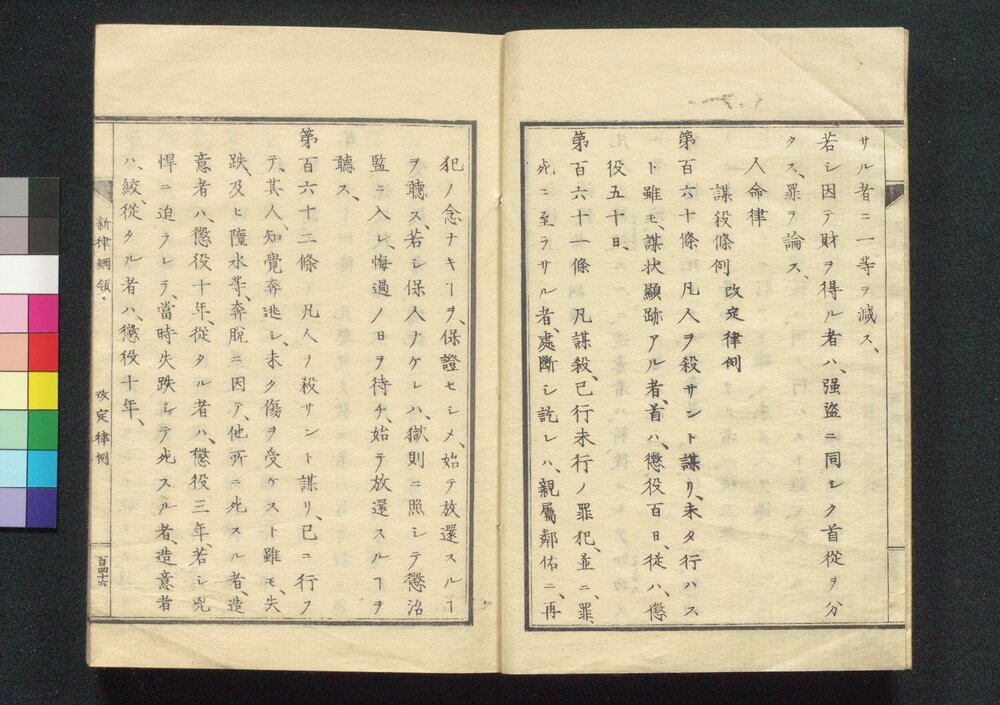 サル者ニ一等ヲ減ス、
若シ因テ財ヲ得ル者ハ、强盜ニ同シク首從ヲ分
タス、罪ヲ論ス、
人命律
謀殺條例 改定律例
第百六十條凡人ヲ殺サント謀リ、未タ行ハス
ト雖モ、謀状顯跡アル者、首ハ、懲役百日、從ハ、懲
役五十日、
第百六十一條凡謀殺、已行未行ノ罪犯、並ニ、罪
死ニ至ラサル者、處斷シ訖レハ、親屬鄰佑ニ、再
犯ノ念ナキヿヲ、保證セシメ、始テ放還スルヿ
ヲ聽ス、若シ保人ナケレハ、獄則ニ照シテ懲治
監ニ入レ、悔過ノ日ヲ待チ、始テ放還スルヿヲ
聽ス、
第百六十二條 凡人ヲ殺サント謀リ、已ニ行フ
テ、其人、知覺奔逃シ、未タ傷ヲ受ケスト雖モ、失
跌、及ヒ墮水等、奔脫ニ因テ、他所ニ死スル者、造
意者ハ、懲役十年、從タル者ハ、懲役三年、若シ兇
悍ニ迫ラレテ、當時失跌シテ死スル者、造意者
ハ、絞、從タル者ハ、懲役十年、
新律綱領・ 改定律例
百四十六